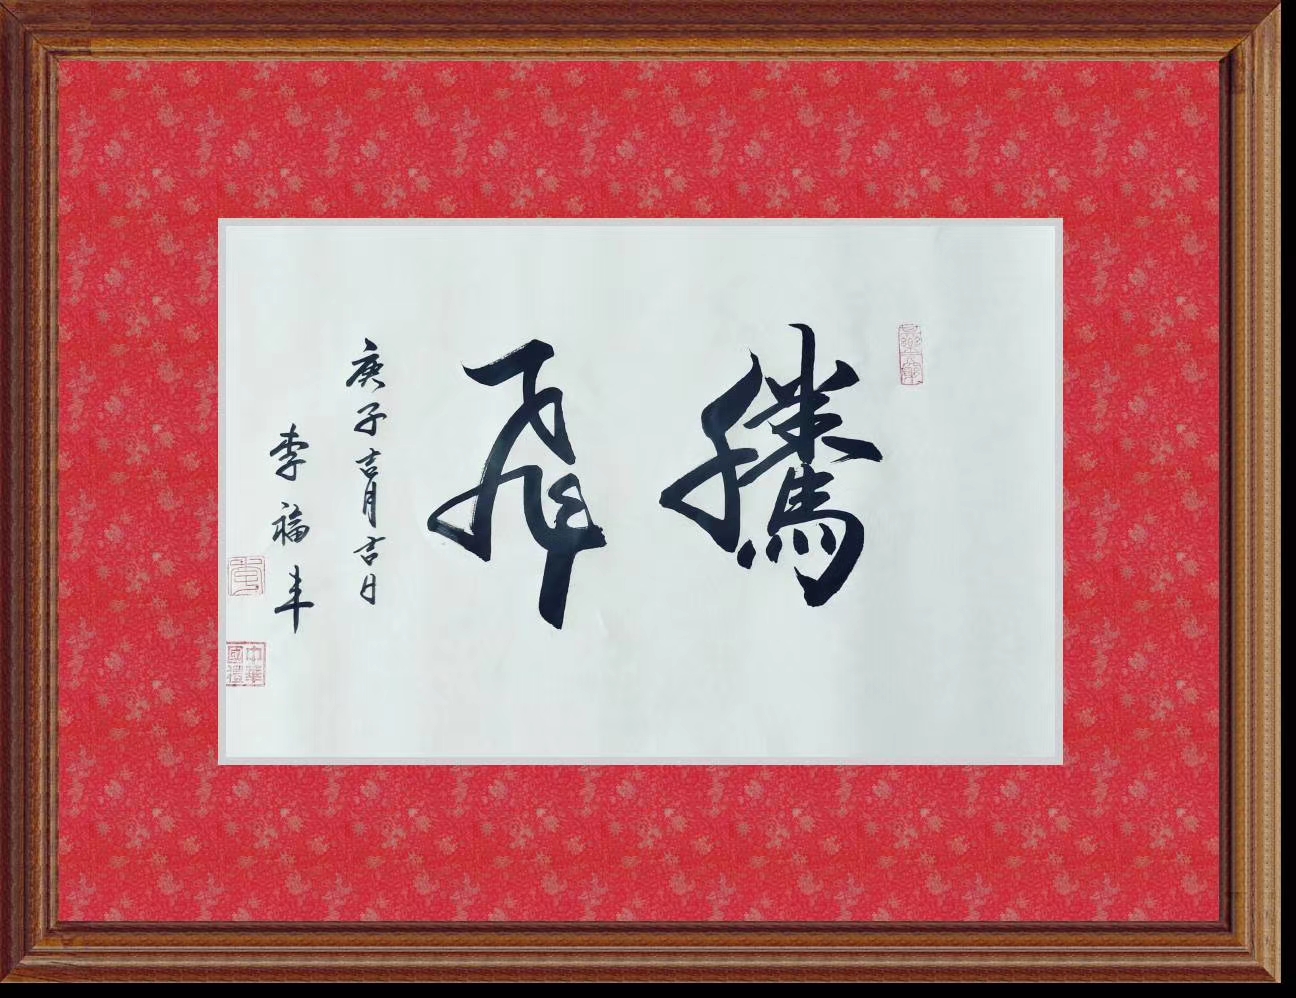 騰飛
庚子吉月吉日
李福丰
中華
國禮